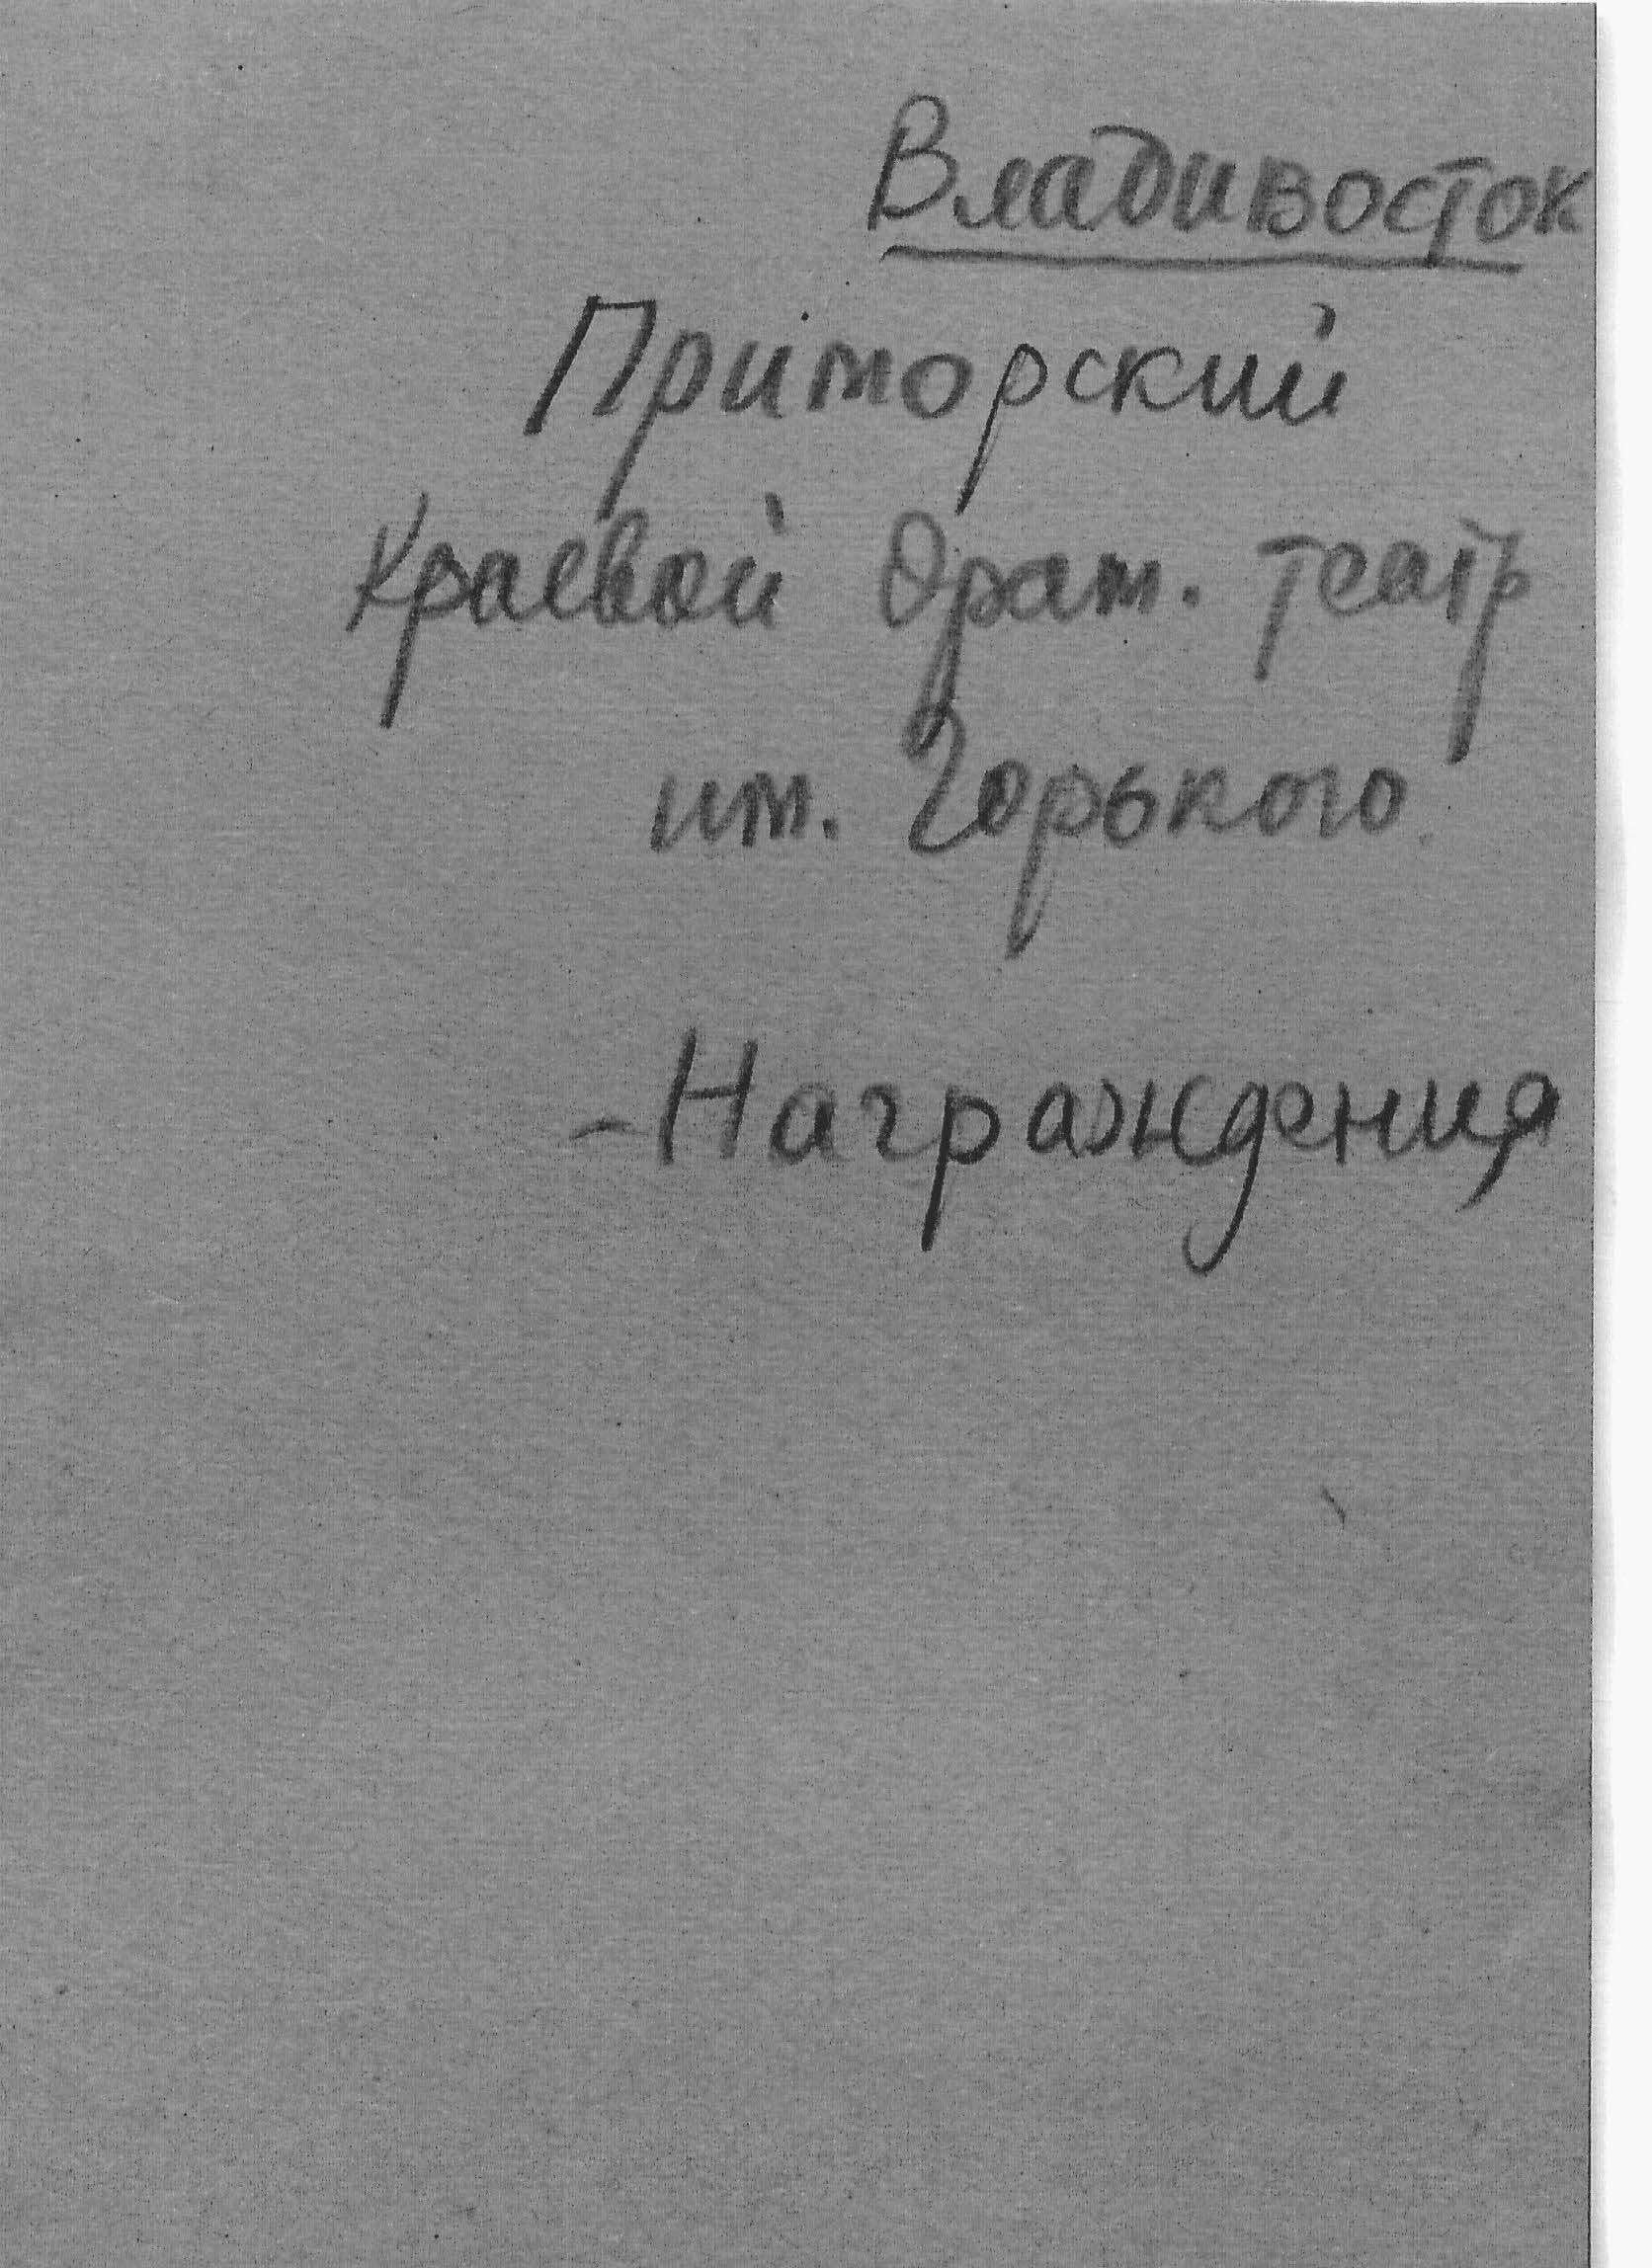 Владивосток
Приморский
Краевой драм. театр
им. Горького
- Награждения